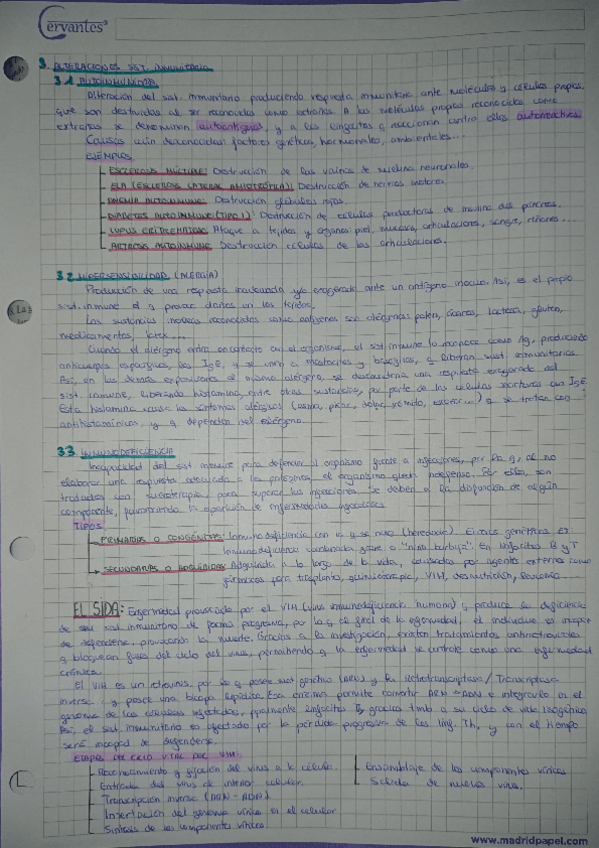 Cervantes
3. ALTERACIONES SIST. INMUNITARIO
3.1 AUTOINMUNIDAD
Alteración del sist. inmunitario produciendo respuesta inmunitaria ante moléculas y células propias,
que son destruidas al ser reconocidas como extrañas. A las moléculas propias reconocidas como
extrañas se denominan autoantígenos, y a los linfocitos q reaccionan contra ellos autorreactivos.
Causas aún desconocidas: factores genéticos, hormonales, ambientales...
EJEMPLOS
ESCLEROSIS MÚLTIPLE: Destrucción de las vainas de mielina neuronales.
ELA (ESCLEROSIS LATERAL AMIOTRÓFICA): Destrucción de nervios motores.
ANEMIA AUTOINMUNE: Destrucción glóbulos rojos.
DIABETES AUTOINMUNE (TIPO 1): Destrucción de células productoras de insulina del páncreas.
LUPUS ERITREMATOSO: Ataque a tejidos y órganos piel, mucosa, articulaciones, sangre, riñones...
ARTROSIS AUTOINMUNE: Destrucción células de las articulaciones.
3.2 HIPERSENSIBILIDAD (ALERGIA)
Producción de una respuesta inadecuada y/o exagerada ante un antígeno inocuo. Así, es el propio
sist. inmune el q provoca daños en los tejidos.
Las sustancias inocuas reconocidas como antígenos son alérgenos: polen, ácaros, lactosa, gluten,
medicamentos, látex...
Cuando el alérgeno entra en contacto con el organismo, el sist inmune lo reconoce como Ag, produciendo
anticuerpos específicos, las IgE, y se unen a mastocitos y basófilos, q liberan sust. inflamatorias.
Así, en las demás exposiciones al mismo alérgeno, se desencadena una respuesta exagerada del
sist. inmune, liberando histamina, entre otras sustancias, por parte de las células con IgE.
Esta histamina causa los síntomas alérgicos (asma, picor, vómito, ...) q se tratan con
antihistamínicos, y q dependen del alérgeno.
3.3 INMUNODEFICIENCIA
Incapacidad del sist inmune para defender al organismo frente a infecciones, por lo q, al no
elaborar una respuesta adecuada a los patógenos, el organismo queda indefenso. Por ello, son
tratados con sueroterapia para superar las infecciones. Se deben a la disfunción de algún
componente, favoreciendo la aparición de enfermedades infecciosas.
TIPOS
PRIMARIAS O CONGÉNITAS: Inmunodeficiencia con la q se nace (heredada). Errores genéticos. Ej:
Inmunodeficiencia combinada grave o "niño burbuja". En linfocitos B y T
SECUNDARIAS O ADQUIRIDAS: Adquirida a lo largo de la vida, causada por agentes externos como
fármacos para trasplante, quimioterapia, VIH, desnutrición,
EL SIDA: Enfermedad provocada por el VIH (virus inmunodeficiencia humana) y produce la deficiencia
de su sist. inmunitario de forma progresiva, por lo q al final de la enfermedad, el individuo es incapaz
de defenderse, provocando la muerte. Gracias a la investigación, existen tratamientos antirretrovirales
q bloquean fases del ciclo del virus, permitiendo q la enfermedad se controle como una enfermedad
crónica.
El VIH es un retrovirus, por lo q posee mat genético (ARN) y la Retrotranscriptasa / Transcriptasa
inversa, y posee una bicapa lipídica. Esa enzima permite convertir ARN → ADN e integrarlo en el
genoma de las células infectadas, linfocitos gracias tmb a su ciclo de vida lisogénico.
Así, el sist. inmunitario es afectado por la pérdida progresiva de los linf. Th, y con el tiempo
será incapaz de defenderse.
ETAPAS DEL CICLO VITAL DEL VIH:
Reconocimiento y fijación del virus a la célula.
Entrada del virus al interior celular.
Transcripción inversa (ARN - ADN)
Inserción del genoma vírico en el celular.
Síntesis de los componentes víricos.
Ensamblaje de los componentes víricos
Salida de nuevos virus.
www.madridpapel.com